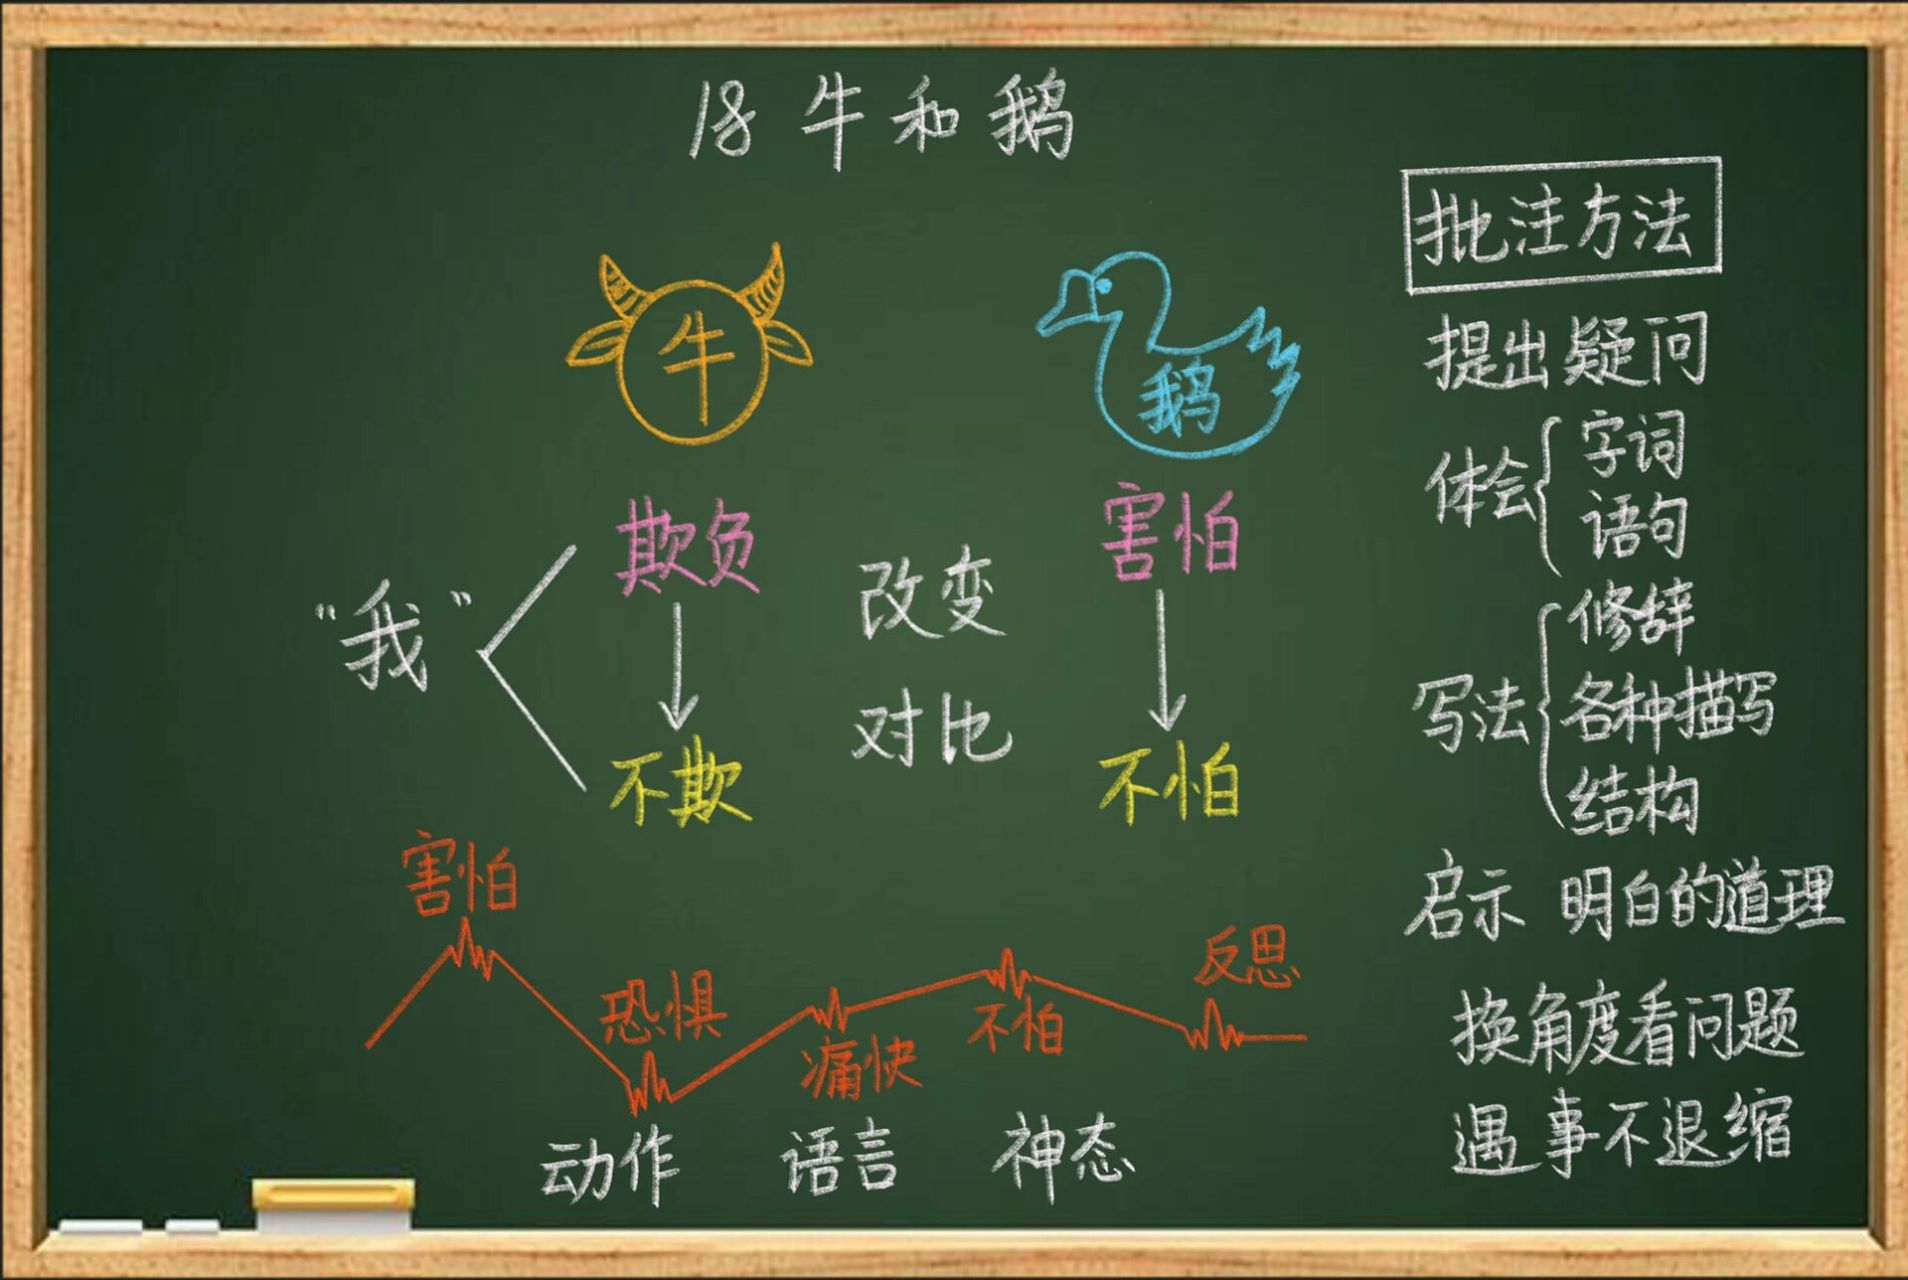 18 牛和鹅
牛
鹅
“我”
欺负
不欺
改变
对比
害怕
不怕
害怕
恐惧
痛快
不怕
反思
动作 语言 神态
批注方法
提出疑问
体会
字词
语句
写法
修辞
各种描写
结构
启示 明白的道理
换角度看问题
遇事不退缩